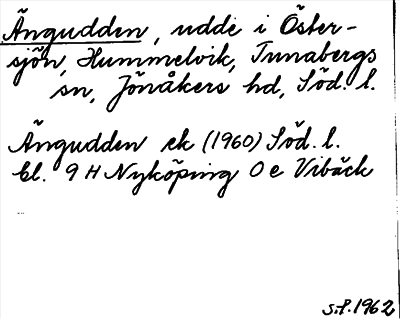 Ängudden, udde i Öster-
sjön, Hummelvik, Tunabergs
sn, Jönåkers hd, Söd. l.
Ängudden ek (1960) Söd. l.
bl. 9 H Nyköping 0 e Vibäck
S.P. 1962